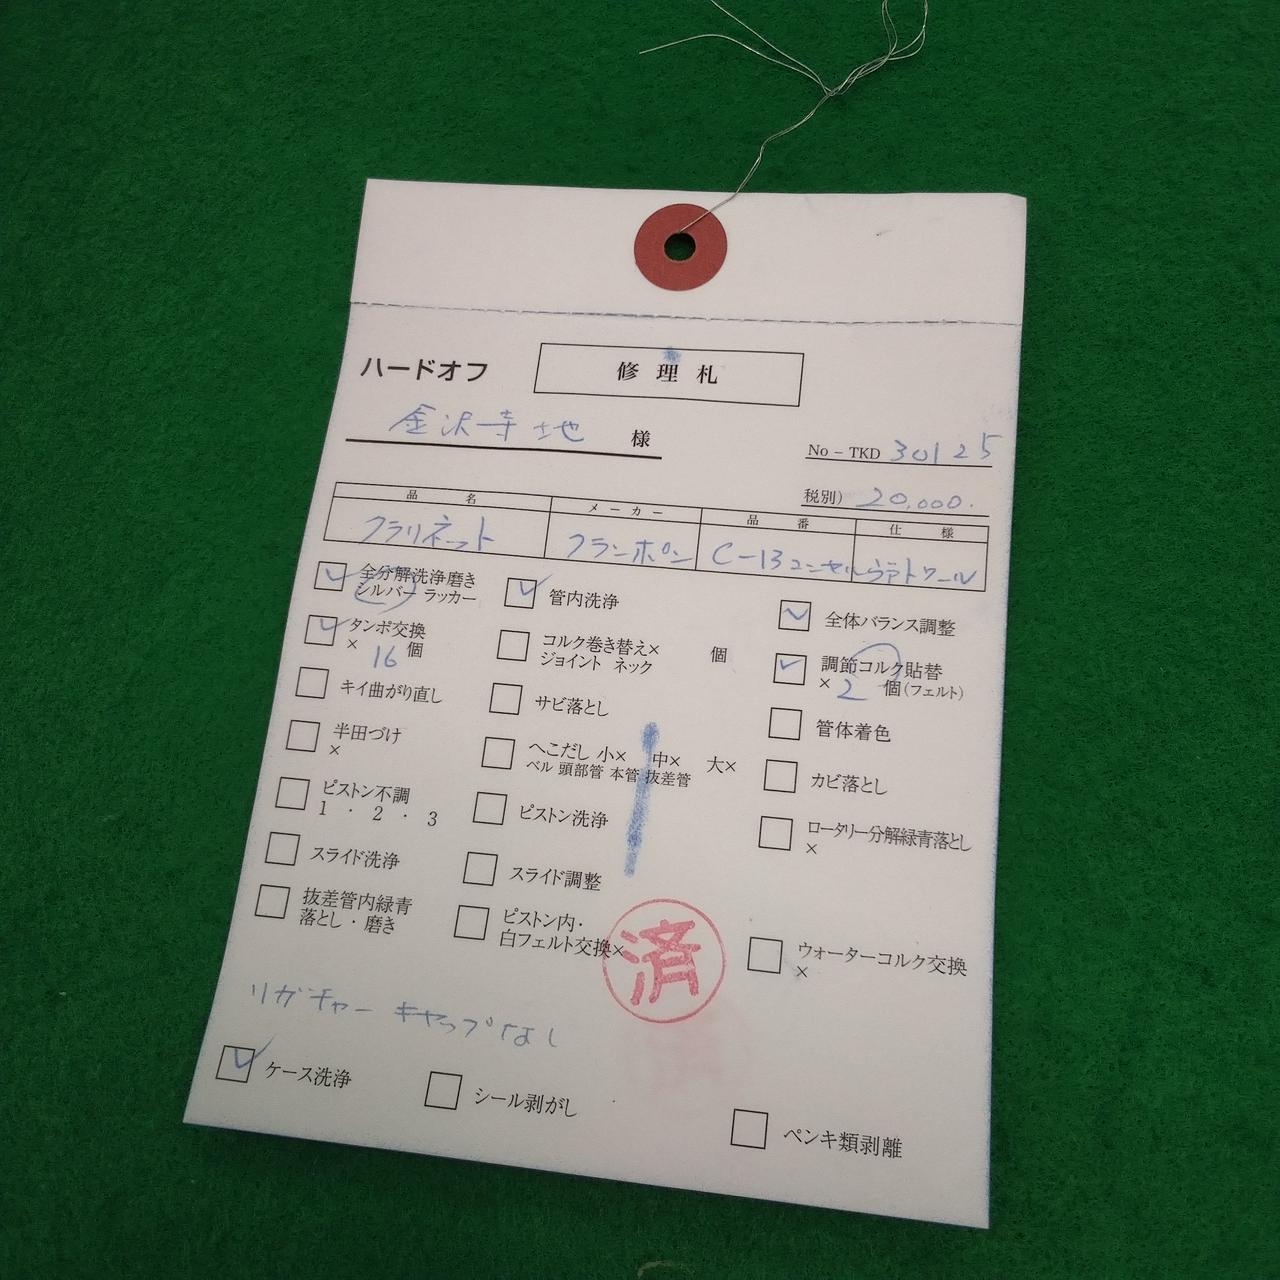 ハードオフ 修理札
金沢寺地 様
No－TKD 30125
税別） 20,000.
品名 メーカー 品番 仕様
クラリネット クランポン C-13コンセルヴァトワール
全分解洗浄磨き
シルバー ラッカー
管内洗浄
全体バランス調整
タンポ交換
× 16 個
コルク巻き替え× 個
ジョイント ネック
調節コルク貼替
× 2 個(フェルト)
キイ曲がり直し
サビ落とし
管体着色
半田づけ
×
へこだし 小× 中× 大×
ベル 頭部管 本管 抜差管
カビ落とし
ピストン不調
1・2・3
ピストン洗浄
ロータリー分解緑青落とし
×
スライド洗浄
スライド調整
抜差管内緑青
落とし・磨き
ピストン内・
白フェルト交換×
済
ウォーターコルク交換
×
リガチャー キャップなし
ケース洗浄
シール剥がし
ペンキ類剥離